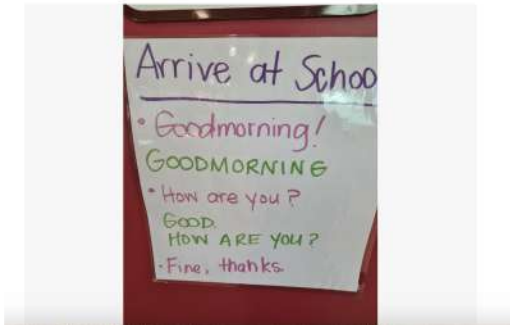 Arrive at Schoo
• Goodmorning!
GOODMORNING
• How are you?
GOOD.
HOW ARE YOU?
• Fine, thanks.